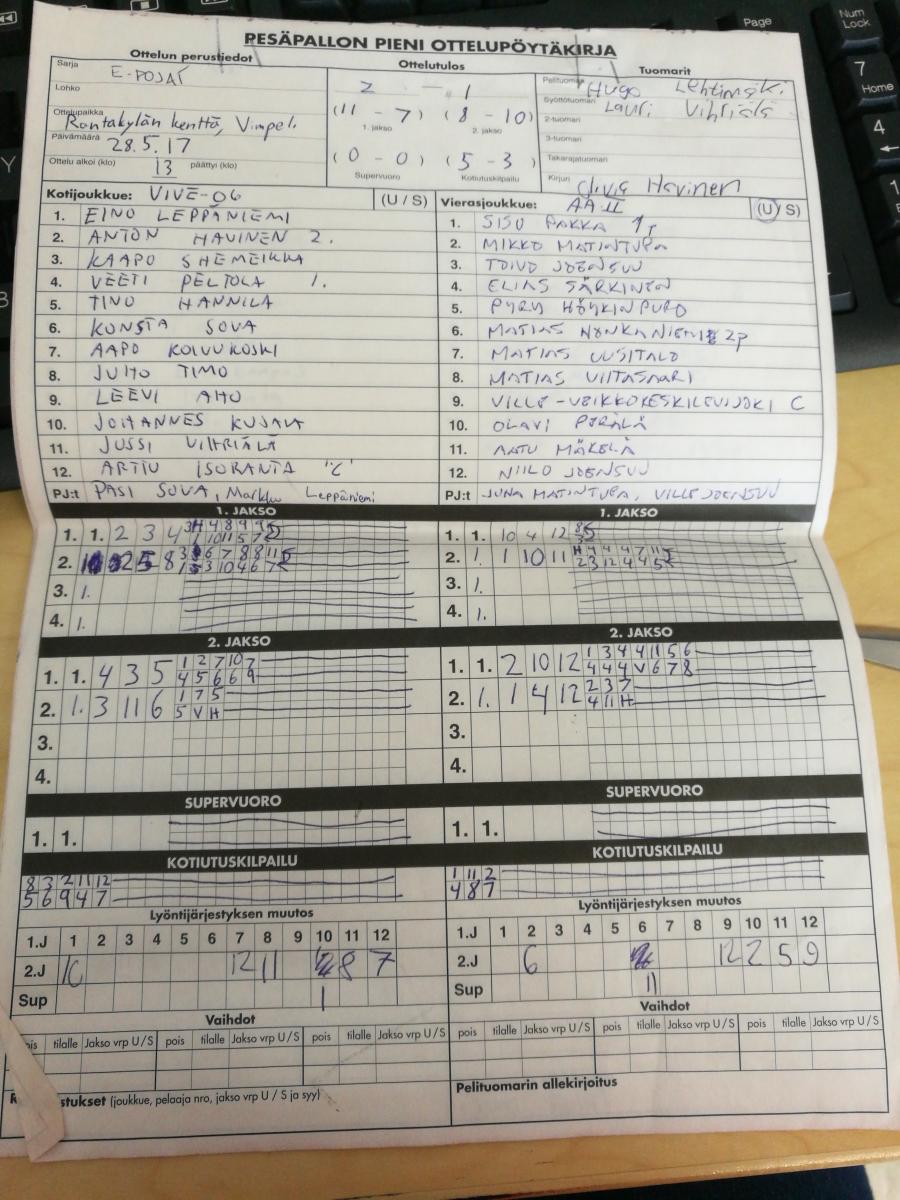 Page
Num
Lock
7
Home
4
1
RESÄPALLON PIENI OTTELUPÖYTÄKIRJA
Ottelun perustiedot
Ottelutulos
Tuomarit
Sarja E-POJAT
Lohko
Ottelupaikka Rantakylän kenttä, Vimpeli
Päivämäärä 28.5.17
Ottelu alkoi (klo) 13 päättyi (klo)
2 - 1
(11 - 7) (8 - 10)
1. jakso 2. jakso
(0 - 0) (5 - 3)
Supervuoro Kotiutuskilpailu
Pelituomari Hugo Lehtimäki
Syöttötuomari Lauri Vihriälä
2-tuomari
3-tuomari
Takarajatuomari
Kirjuri Havinen
Kotijoukkue: VIVE-06 (U / S)
1. EINO LEPPÄNIEMI
2. ANTON HAVINEN 2.
3. KAAPO SHEMEIKKA
4. VEETI PELTOLA 1.
5. TINO HANNILA
6. KONSTA SOVA
7. AAPO KOIVUKOSKI
8. JUHO TIMO
9. LEEVI AHO
10. JOHANNES KUJALA
11. JUSSI VIHRIÄLÄ
12. ARTTU ISORANTA "C"
PJ:t PASI SOVA, Markku Leppäniemi
Vierasjoukkue: (U / S)
1. SISU PAKKA 1p
2. MIKKO MATINTUPA
3. TOIVO JOENSUU
4. ELIAS SÄRKINEN
5. PYRY HÖYKINPURO
6. MATIAS NONKANIEMI 2p
7. MATIAS UUSITALO
8. MATIAS VIITASAARI
9. VILLE-VEIKKO KESKILEVIJOKI C
10. OLAVI PERÄLÄ
11. AATU MÄKELÄ
12. NIILO JOENSUU
PJ:t JUHA MATINTUPA, VILLE JOENSUU
1. JAKSO
1. 1. 2 3 4
2. 8
3. 1.
4. 1.
1. JAKSO
1. 1. 10 4 12
2. 1. 1 10 11
3. 1.
4. 1.
2. JAKSO
1. 1. 4 3 5 1 2 7 10 7
4 5 6 6 9
2. 1. 3 11 6 1 7 5
5 V H
3.
4.
2. JAKSO
1. 1. 2 10 12 1 3 4 4 11 5 6
4 4 4 V 6 7 8
2. 1. 1 4 12 2 3 7
4 11 H
3.
4.
SUPERVUORO
1. 1.
SUPERVUORO
1. 1.
KOTIUTUSKILPAILU
8 3 2 11 12
5 6 9 4 7
KOTIUTUSKILPAILU
1 11 2
4 8 7
Lyöntijärjestyksen muutos
1.J 1 2 3 4 5 6 7 8 9 10 11 12
2.J 10 12 11 8 7
Sup 1
Lyöntijärjestyksen muutos
1.J 1 2 3 4 5 6 7 8 9 10 11 12
2.J 6 12 2 5 9
Sup 11
Vaihdot
tilalle Jakso vrp U / S pois tilalle Jakso vrp U / S pois tilalle Jakso vrp U / S
Vaihdot
pois tilalle Jakso vrp U / S pois tilalle Jakso vrp U / S pois tilalle Jakso vrp U / S
(joukkue, pelaaja nro, jakso vrp U / S ja syy)
Pelituomarin allekirjoitus